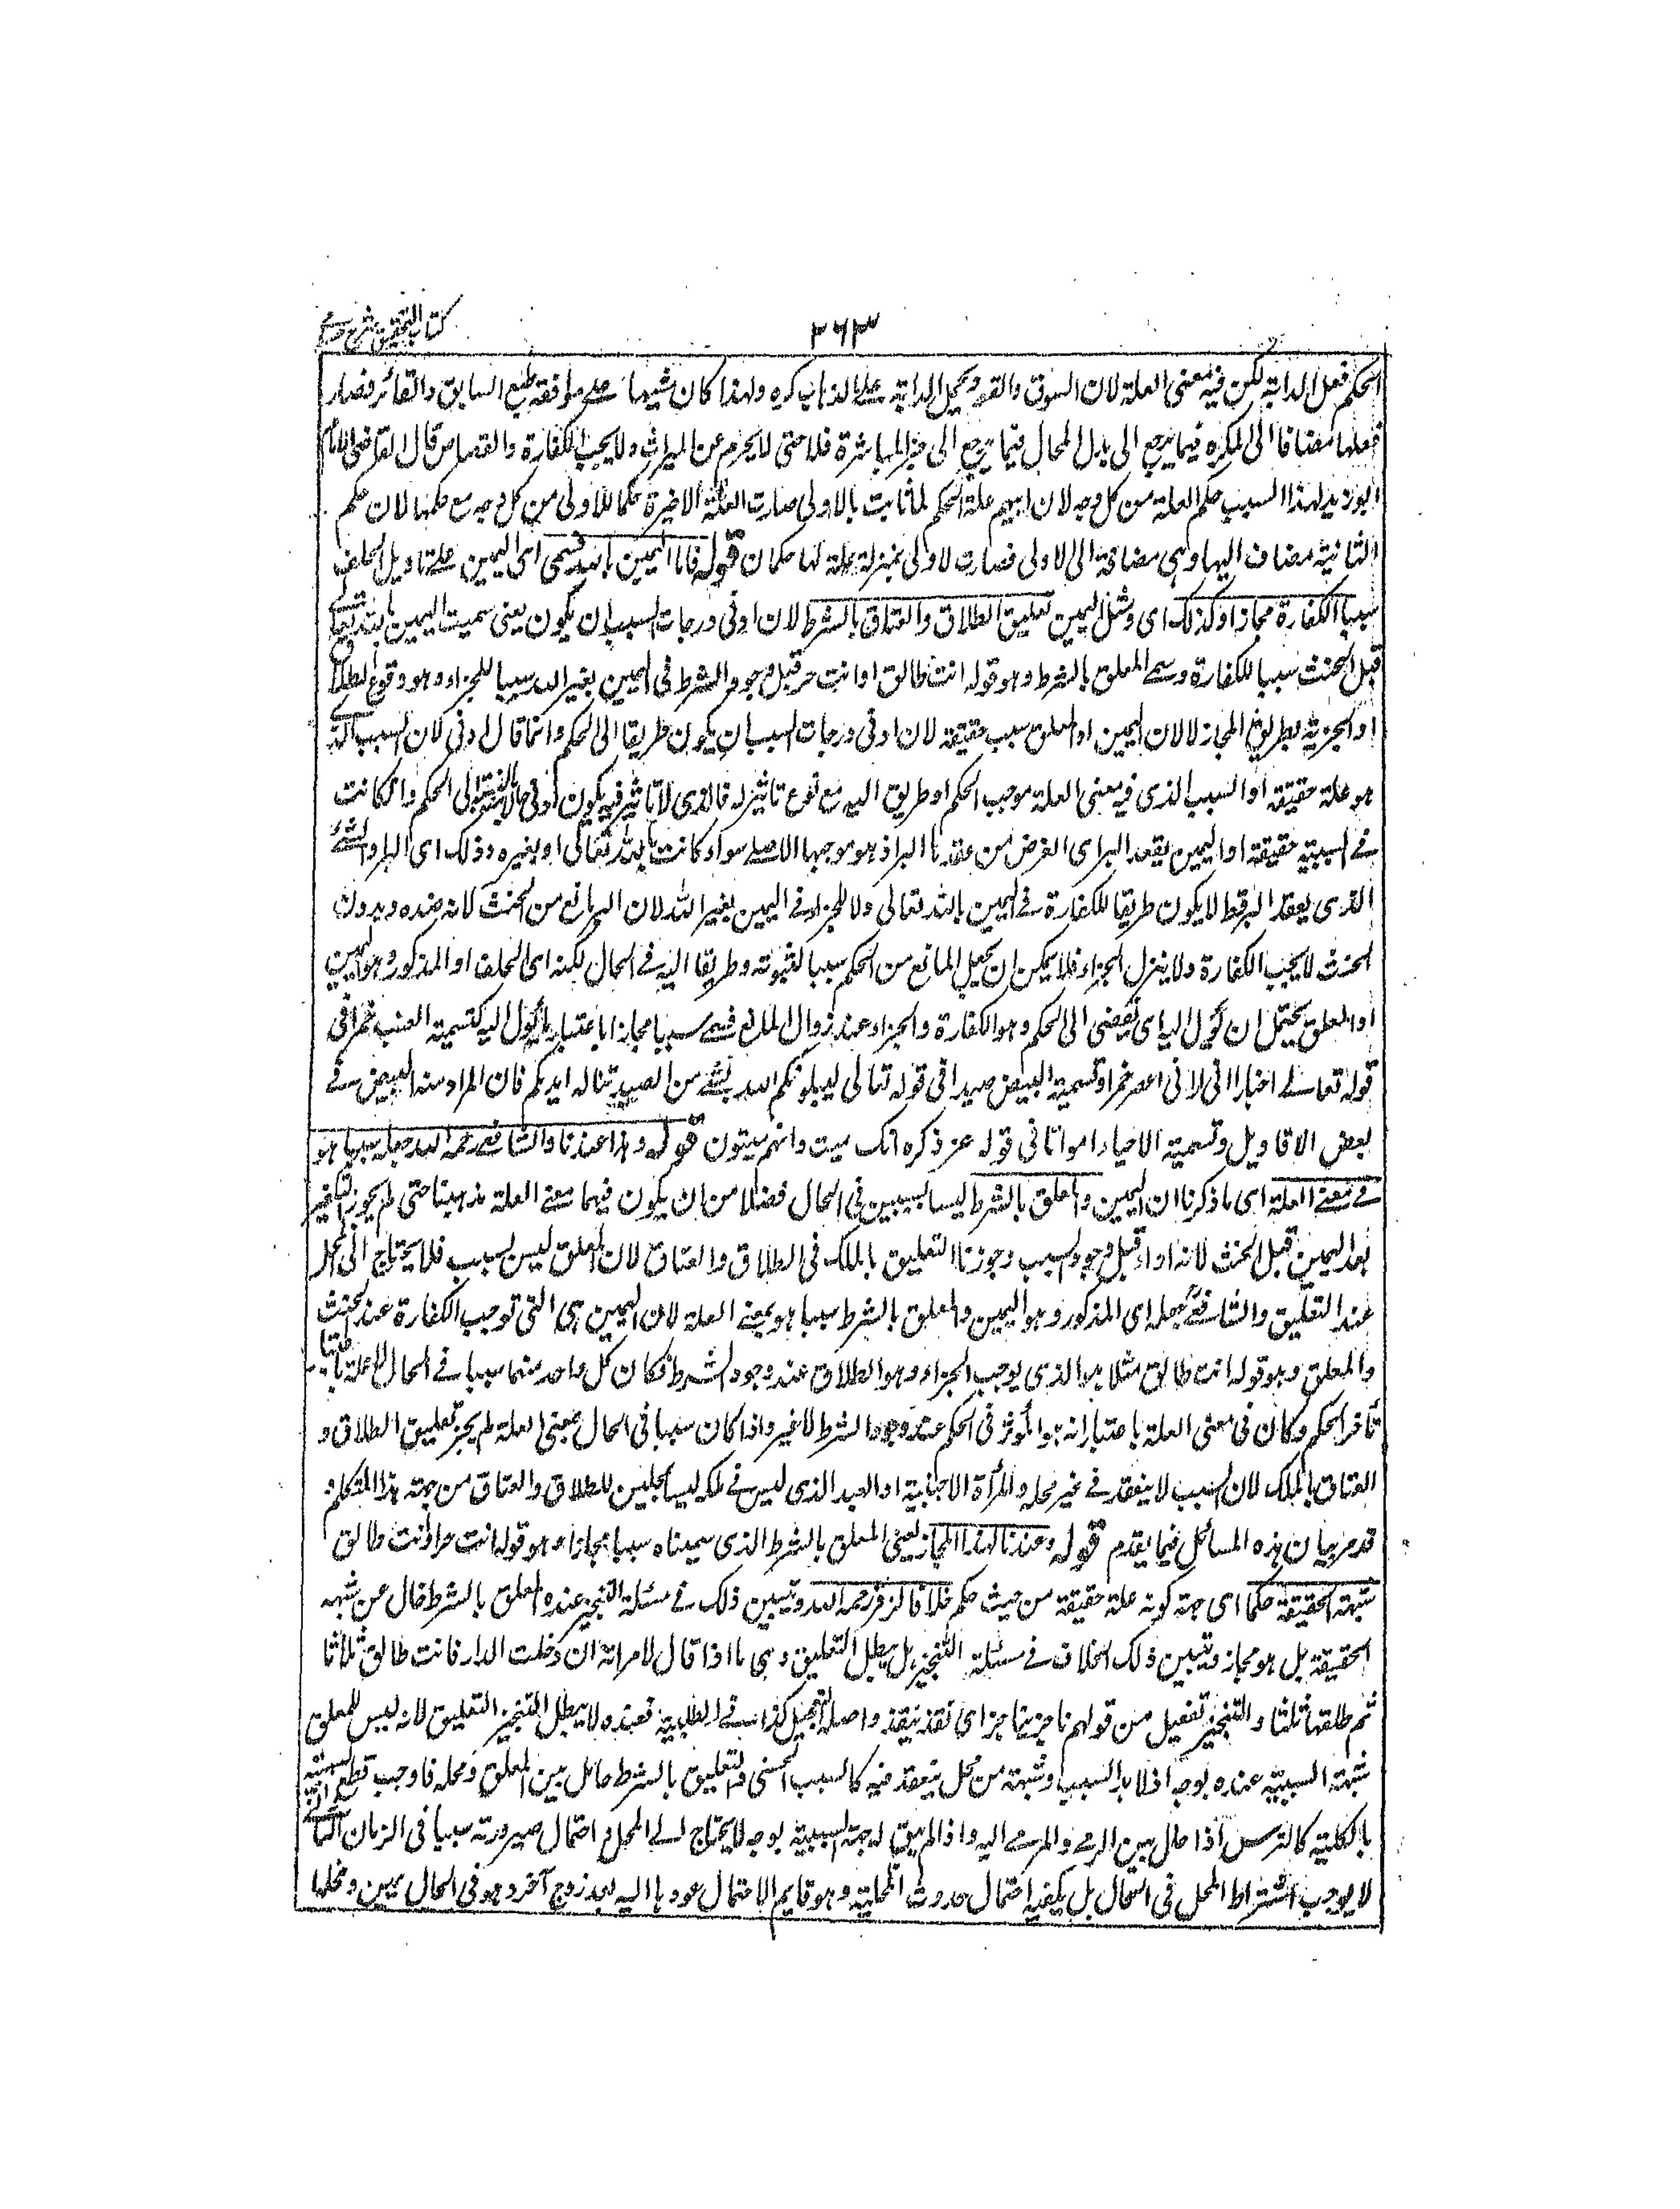 كتاب التحقيق شرح حسامي
٣٦٣
الحكم فعل الدابة لكن فيه معنى العلة لان السوق والقود يحمل الدابة على الذهاب كره ولهذا كان مشيها على موافقة طبع السابق والقائد فصار
فعلها مضافا الى المكره فيما يرجع الى بدل المحل فيما يرجع الى جزاء المباشرة فلا حتى لا يحرم عن الميراث ولا يجب الكفارة والقصاص قال القاضي الامام
ابو زيد لهذا السبب حكم العلة من كل وجه لان علة الحكم لما ثابت بالاولى صارت العلة الاخيرة حكما للاولى من كل وجه مع حكمها لان حكم
الثانية مضاف اليها وهي مضافة الى الاولى فصارت لاولى بمنزلة علة لها حكمان قوله فاما اليمين بالله فسمى اى اليمين على تاويل الحلف
سببا للكفارة مجازا وكذلك اى ومثل اليمين تعليق الطلاق والعتاق بالشرط لان ادنى درجات السبب ان يكون يعنى سميت اليمين بالله تعالى
قبل الحنث سببا للكفارة وسمى المعلق بالشرط وهو قوله انت طالق او انت حر قبل وجود الشرط فى اليمين بغير الله سببا للجزاء وهو وقوع الطلاق
او الحرية بطريق المجاز لا لان اليمين او المعلق سبب حقيقة لان ادنى درجات السبب ان يكون طريقا الى الحكم وانما قال ادنى لان السبب الذى
هو علة حقيقة او السبب الذى فيه معنى العلة موجب الحكم او طريق اليه مع نوع تاثير له فالذى لا تاثير فيه يكون ادنى حالا بالنسبة الى الحكم وان كانت
فى السببية حقيقة او اليمين يقعد البر اى الغرض من عقدنا البر اذ هو موجبها الاصلى سواء كانت بالله تعالى او بغيره وذلك اى البر والشئ
الذى يعقد البر قط لا يكون طريقا للكفارة فى اليمين بالله تعالى ولا للجزاء فى اليمين بغير الله لان البر مانع من الحنث لانه ضده وبدون
الحنث لا يجب الكفارة ولا ينزل الجزاء فلا يمكن ان يجعل المانع من الحكم سببا لثبوته وطريقا اليه فى الحال لكنه اى الحلف او المذكور وهو اليمين
او المعلق يحتمل ان يؤل اليه اى تفضى الى الحكم وهو الكفارة والجزاء عند زوال المانع فسمى سببا مجازا باعتبار ما يؤل اليه كتسمية العنب خمرا فى
قوله تعالى اخبارا انى ارانى اعصر خمرا وتسمية البيض صيدا فى قوله تعالى ليبلونكم الله بشئ من الصيد تناله ايديكم فان المراد منه البيض فى
بعض الاقاويل وتسمية الاحياء امواتا فى قوله عز ذكره انك ميت وانهم ميتون قوله وهذا عندنا والشافعى رحمه الله جعله سببا هو
فى معنى العلة اى ما ذكرنا ان اليمين والمعلق بالشرط ليسا بسببين فى الحال فضلا من ان يكون فيهما معنى العلة مذهبنا حتى لم يجوز التكفير
بعد اليمين قبل الحنث لانه اداء قبل وجود السبب وجوزنا التعليق بالملك فى الطلاق والعتاق لان المعلق ليس بسبب فلا يحتاج الى المحل
عند التعليق والشافعى جعله اى المذكور وهو اليمين والمعلق بالشرط سببا هو بمعنى العلة لان اليمين هى التى توجب الكفارة عند الحنث
والمعلق وهو قوله انت طالق مثلا هو الذى يوجب الجزاء وهو الطلاق عند وجود الشرط فكان كل واحد منهما سببا فى الحال
تأخر الحكم وكان فى معنى العلة باعتبار انه هو المؤثر فى الحكم عند وجود الشرط لا غير واذا كان سببا فى الحال بمعنى العلة لم يجز تعليق الطلاق و
العتاق بالملك لان السبب لا ينعقد فى غير محله والمرأة الاجنبية او العبد الذى ليس فى ملكه ليسا بمحلين للطلاق والعتاق من جهة هذا المتكلم و
قد مر بيان هذه المسائل فيما يقدم قوله وعندنا لهذا المجاز يعنى المعلق بالشرط الذى سميناه سببا مجازا وهو قوله انت حر او انت طالق
شبهة الحقيقة حكما اى جهة كونه علة حقيقة من حيث حكم خلافا لزفر رحمه الله وتبين ذلك فى مسئلة التنجيز عنده المعلق بالشرط خال عن شبهة
الحقيقة بل هو مجاز وتبين ذلك الخلاف فى مسئلة التنجيز بل يبطل التعليق وهى ما اذا قال لامرأته ان دخلت الدار فانت طالق ثلاثا
ثم طلقها ثلثا والتنجيز تفعيل من قولهم ناجز بناجز اى نقد بنقد واصله التعجيل كذا فى الطلبة فعنده لا يبطل التنجيز التعليق لانه ليس للمعلق
شبهة السببية عنده بوجه اذ لا بد للسبب وشبهته من محل ينعقد فيه كالسبب الحسى والتعليق بالشرط حائل بين المعلق ومحله فاوجب قطع السببية
بالكلية كالترس اذا حال بين الرمى والمرمى اليه واذا لم يبق له جهة السببية بوجه لا يحتاج الى المحل واحتمال صيرورته سببا فى الزمان الثانى
لا يوجب اشتراط المحل فى الحال بل يكفيه احتمال حدوث المحلية وهو قايم لاحتمال عودها اليه بعد زوج آخر وهو فى الحال يمين ومحلها